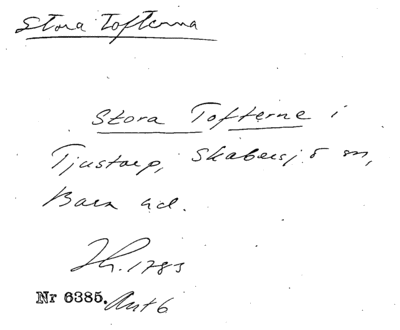 Stora Tofterna
Stora Tofterne i
Tjustorp, Skabersjö sn,
Bara hd.
Jh. 1783
Nr 6385. Ant 6